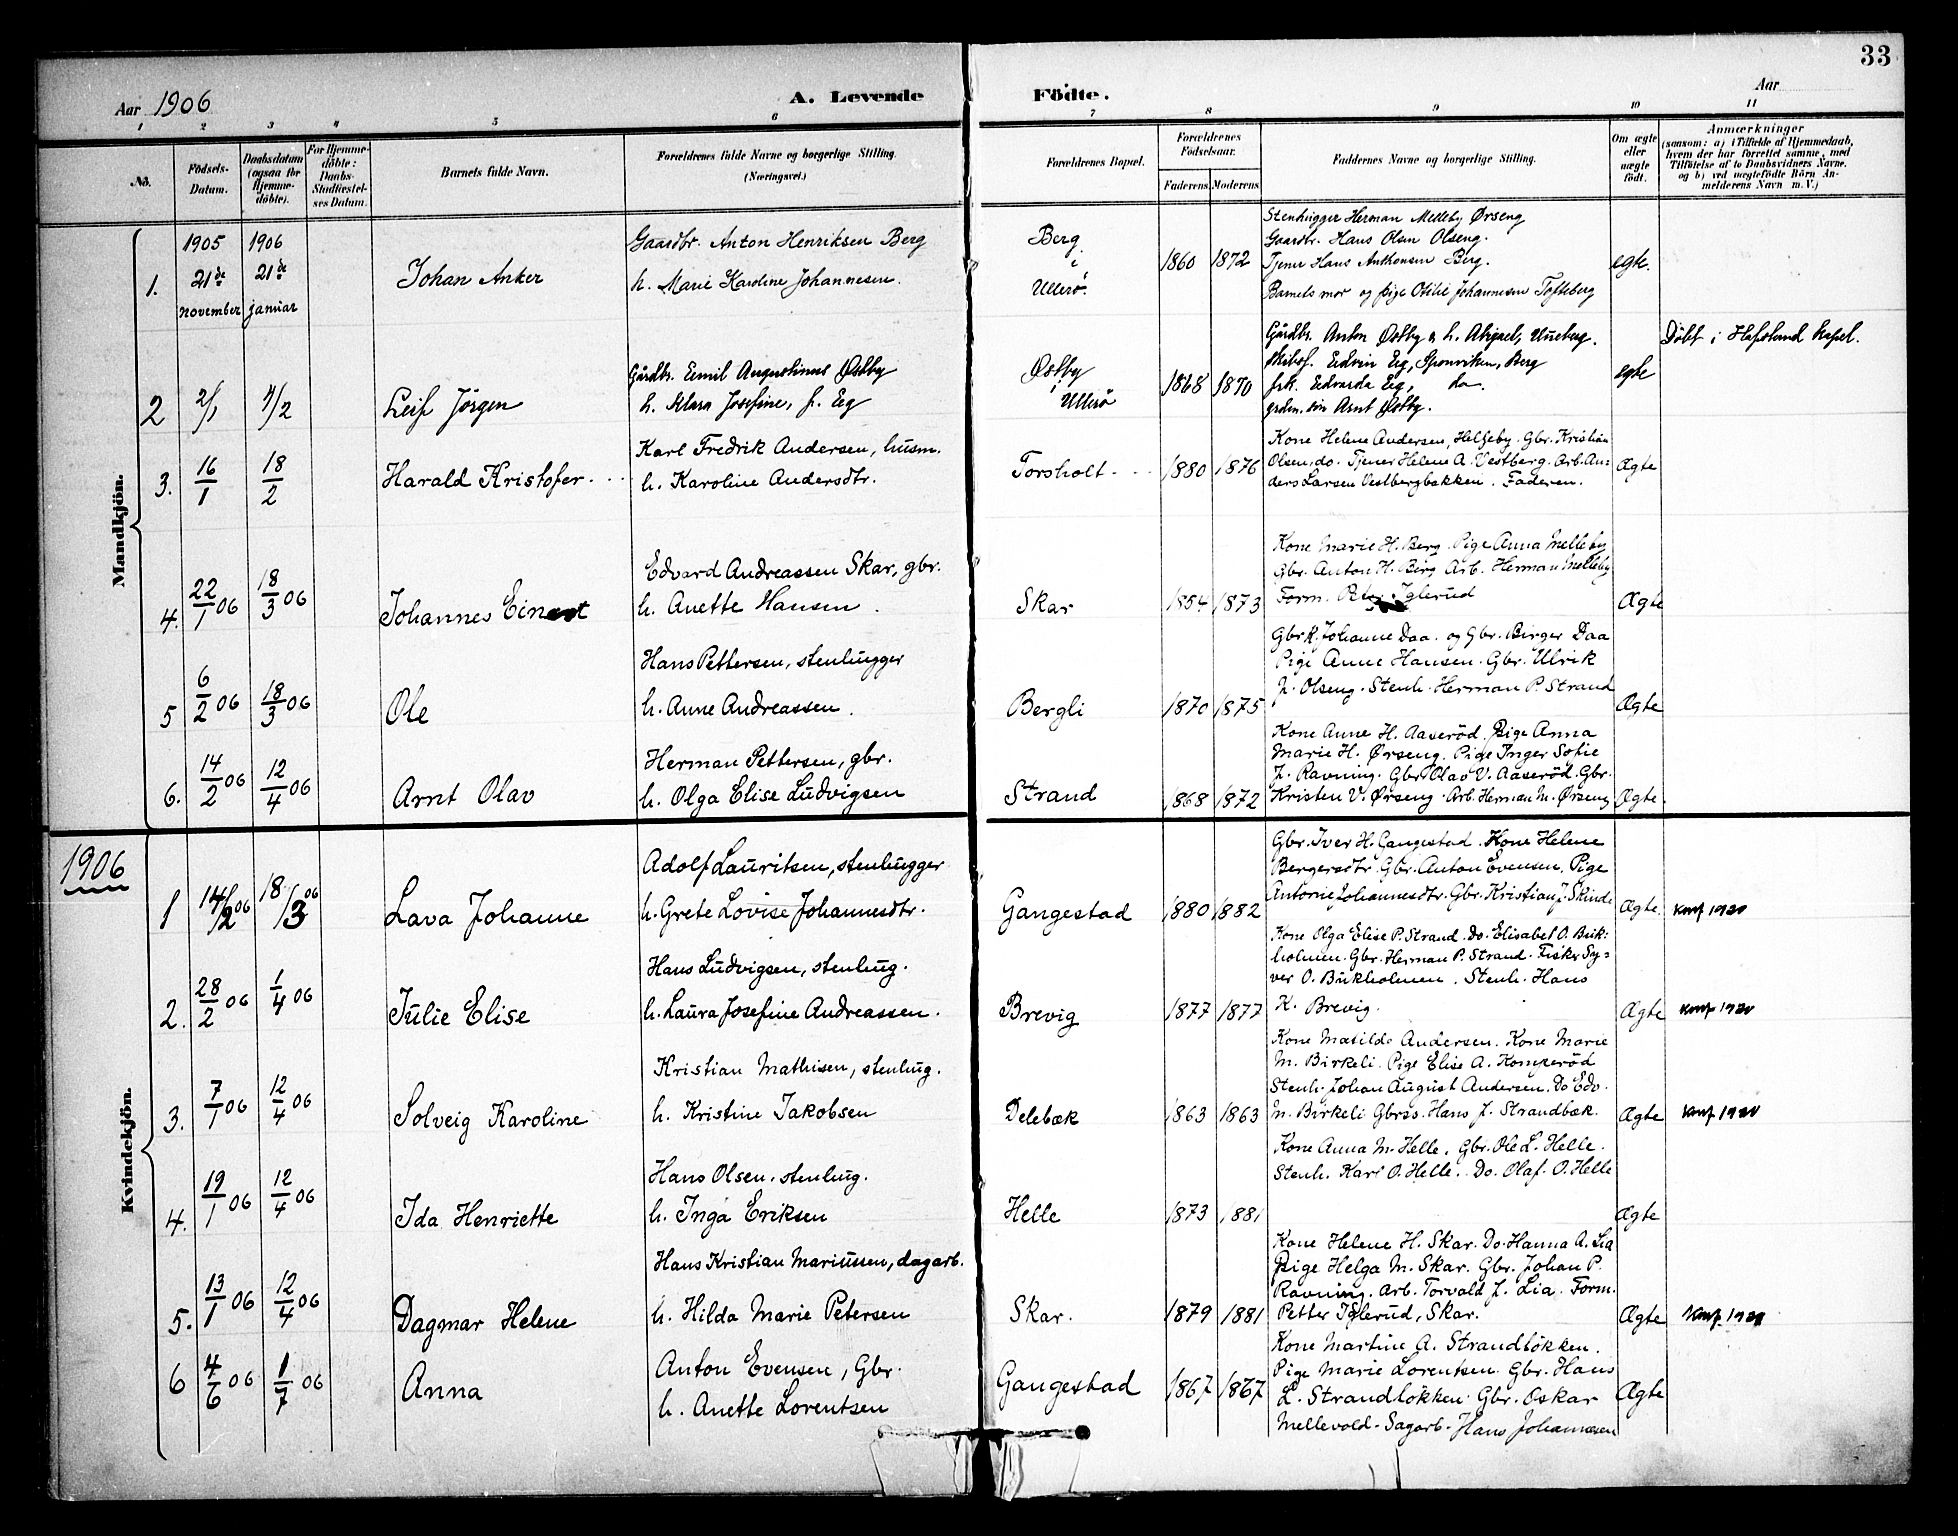 33
Aar 1906
A. Levende
Födte.
Aar
1 2 3 4 5 6 7 8 9 10 11
No.
Födsels-Datum.
Daabsdatum (ogsaa for Hjemme-döbte).
For Hjemme-döbte: Daabs-Stadfæstel-ses Datum.
Barnets fulde Navn.
Forældrenes fulde Navne og borgerlige Stilling. (Næringsvei.)
Forældrenes Bopæl.
Forældrenes Födselsaar.
Faderens. Moderens.
Faddernes Navne og borgerlige Stilling.
Om ægte eller uægte födt.
Anmærkninger
(saasom: a) i Tilfælde af Hjemmedaab,
hvem der har forrettet samme, med
Tilföielse af to Daabsvidners Navne.
og b) ved uægtefödte Börn An-
melderens Navn m. V.)
Mandkjön.
1. 1905 21de november 1906 21de januar
Johan Anker
Gaardbr. Anton Henriksen Berg
h. Marie Karoline Johannesen.
Berg i Ullerö.
1860 1872
Stenhugger Herman Melleby Ørseng
Gaardbr. Hans Olsen Olseng.
Tjener Hans Anthonsen Berg.
Barnets mor og pige Otilie Johannesen Tofteberg
egte.
2 2/1 4/2
Leif Jörgen
Gårdbr. Emil Augustinus Østby
h. Klara Josefine, f. Eeg
Østby i Ullerö
1868 1870
Gårdbr. Anton Østby & h. Abigael,
Edvin Eeg, Sponviken, Berg
frk. Edvarda Eeg, do.
grdm. sön Arnt Østby.
egte
Döbt i Hafslund kapel.
3. 16/1 18/2
Harald Kristofer.
Karl Fredrik Andersen, husm.
h. Karoline Andersdtr.
Torsholt
1880 1876
Kone Helene Andersen, Helgeby. Gbr. Kristian
Olsen, do. Tjener Helene A. Vestberg. Arb. An-
ders Larsen Vestbergbakken. Faderen.
Ægte
4. 22/1 06 18/3 06
Johannes Einart
Edvard Andreassen Skar, gbr.
h. Anette Hansen.
Skar
1854 1873
Kone Marie H. Berg. Pige Anna Melleby
Gbr. Anton H. Berg Arb. Herman Melleby
Form. Peter Iglerud
Ægte
5 6/2 06 18/3 06
Ole
Hans Pettersen, stenhugger
h. Anne Andreassen.
Bergli
1870 1875
Gbr.k. Johanne Daa. og Gbr. Birger Daa
Pige Anne Hansen. Gbr. Ulrik
J. Olseng. Stenh. Herman P. Strand
Ægte
6. 14/2 06 12/4 06
Arnt Olav
Herman Pettersen, gbr.
h. Olga Elise Ludvigsen
Strand
1868 1872
Kone Anne H. Aaseröd. Pige Anna
Marie H. Ørseng. Pige Inger Sofie
J. Ravning. Gbr. Olav V. Aaseröd. Gbr.
Kristen V. Ørseng. Arb. Herman M. Ørseng
Ægte.
1906
Kvindekjön.
1 14/2 06 18/3 06
Lava Johanne
Adolf Lauritsen, stenhugger
h. Grete Lovise Johannesdtr.
Gangestad
1880 1882
Gbr. Iver H. Gangestad. Kone Helene
Bergersdtr. Gbr. Anton Evensen. Pige
Antonie Johannesdtr. Gbr. Kristian J. Skinde
Ægte.
Konf 1920
2. 28/2 06 1/4 06
Julie Elise
Hans Ludvigsen, stenhug.
h. Laura Josefine Andreassen.
Brevig
1877 1877
Kone Olga Elise P. Strand. Do. Elisabet O. Buk-
holmen. Gbr. Herman P. Strand. Fisker Sy-
ver O. Bukholmen. Stenh. Hans
K. Brevig.
Ægte
Konf 1920
3. 7/1 06 12/4 06
Solveig Karoline
Kristian Mathisen, stenhug.
h. Kristine Jakobsen
Delebæk
1863 1863
Kone Matilde Andersen. Kone Marie
M. Birkeli. Pige Elise A. Kompperöd
Stenh. Johan August Andersen. Do Edv.
M. Birkeli Gbrss. Hans J. Strandbæk.
Ægte
Konf 1920
4. 19/1 06 12/4 06
Ida Henriette
Hans Olsen, stenhug.
h. Inga Eriksen
Helle
1873 1881
Kone Anna M. Helle. Gbr. Ole L. Helle.
Stenh. Karl O. Helle. Do. Olaf. O. Helle
Ægte
5. 13/1 06 12/4 06
Dagmar Helene
Hans Kristian Mariussen, dagarb.
h. Hilda Marie Petersen
Skar.
1879 1881
Kone Helene H. Skar. Do. Hanna A. Lia
Pige Helga M. Skar. Gbr. Johan P.
Ravning. Arb. Torvald J. Lia. Form.
Petter Iglerud, Skar.
Ægte
6 4/6 06 1/7 06
Anna
Anton Evensen, Gbr.
h. Anette Lorentsen
Gangestad
1867 1867
Kone Martine A. Strandlökken.
Pige Marie Lorentsen. Gbr. Hans
L. Strandlökken. Gbr. Oskar
Mellevold. Sagarb. Hans Johannesen
Ægte